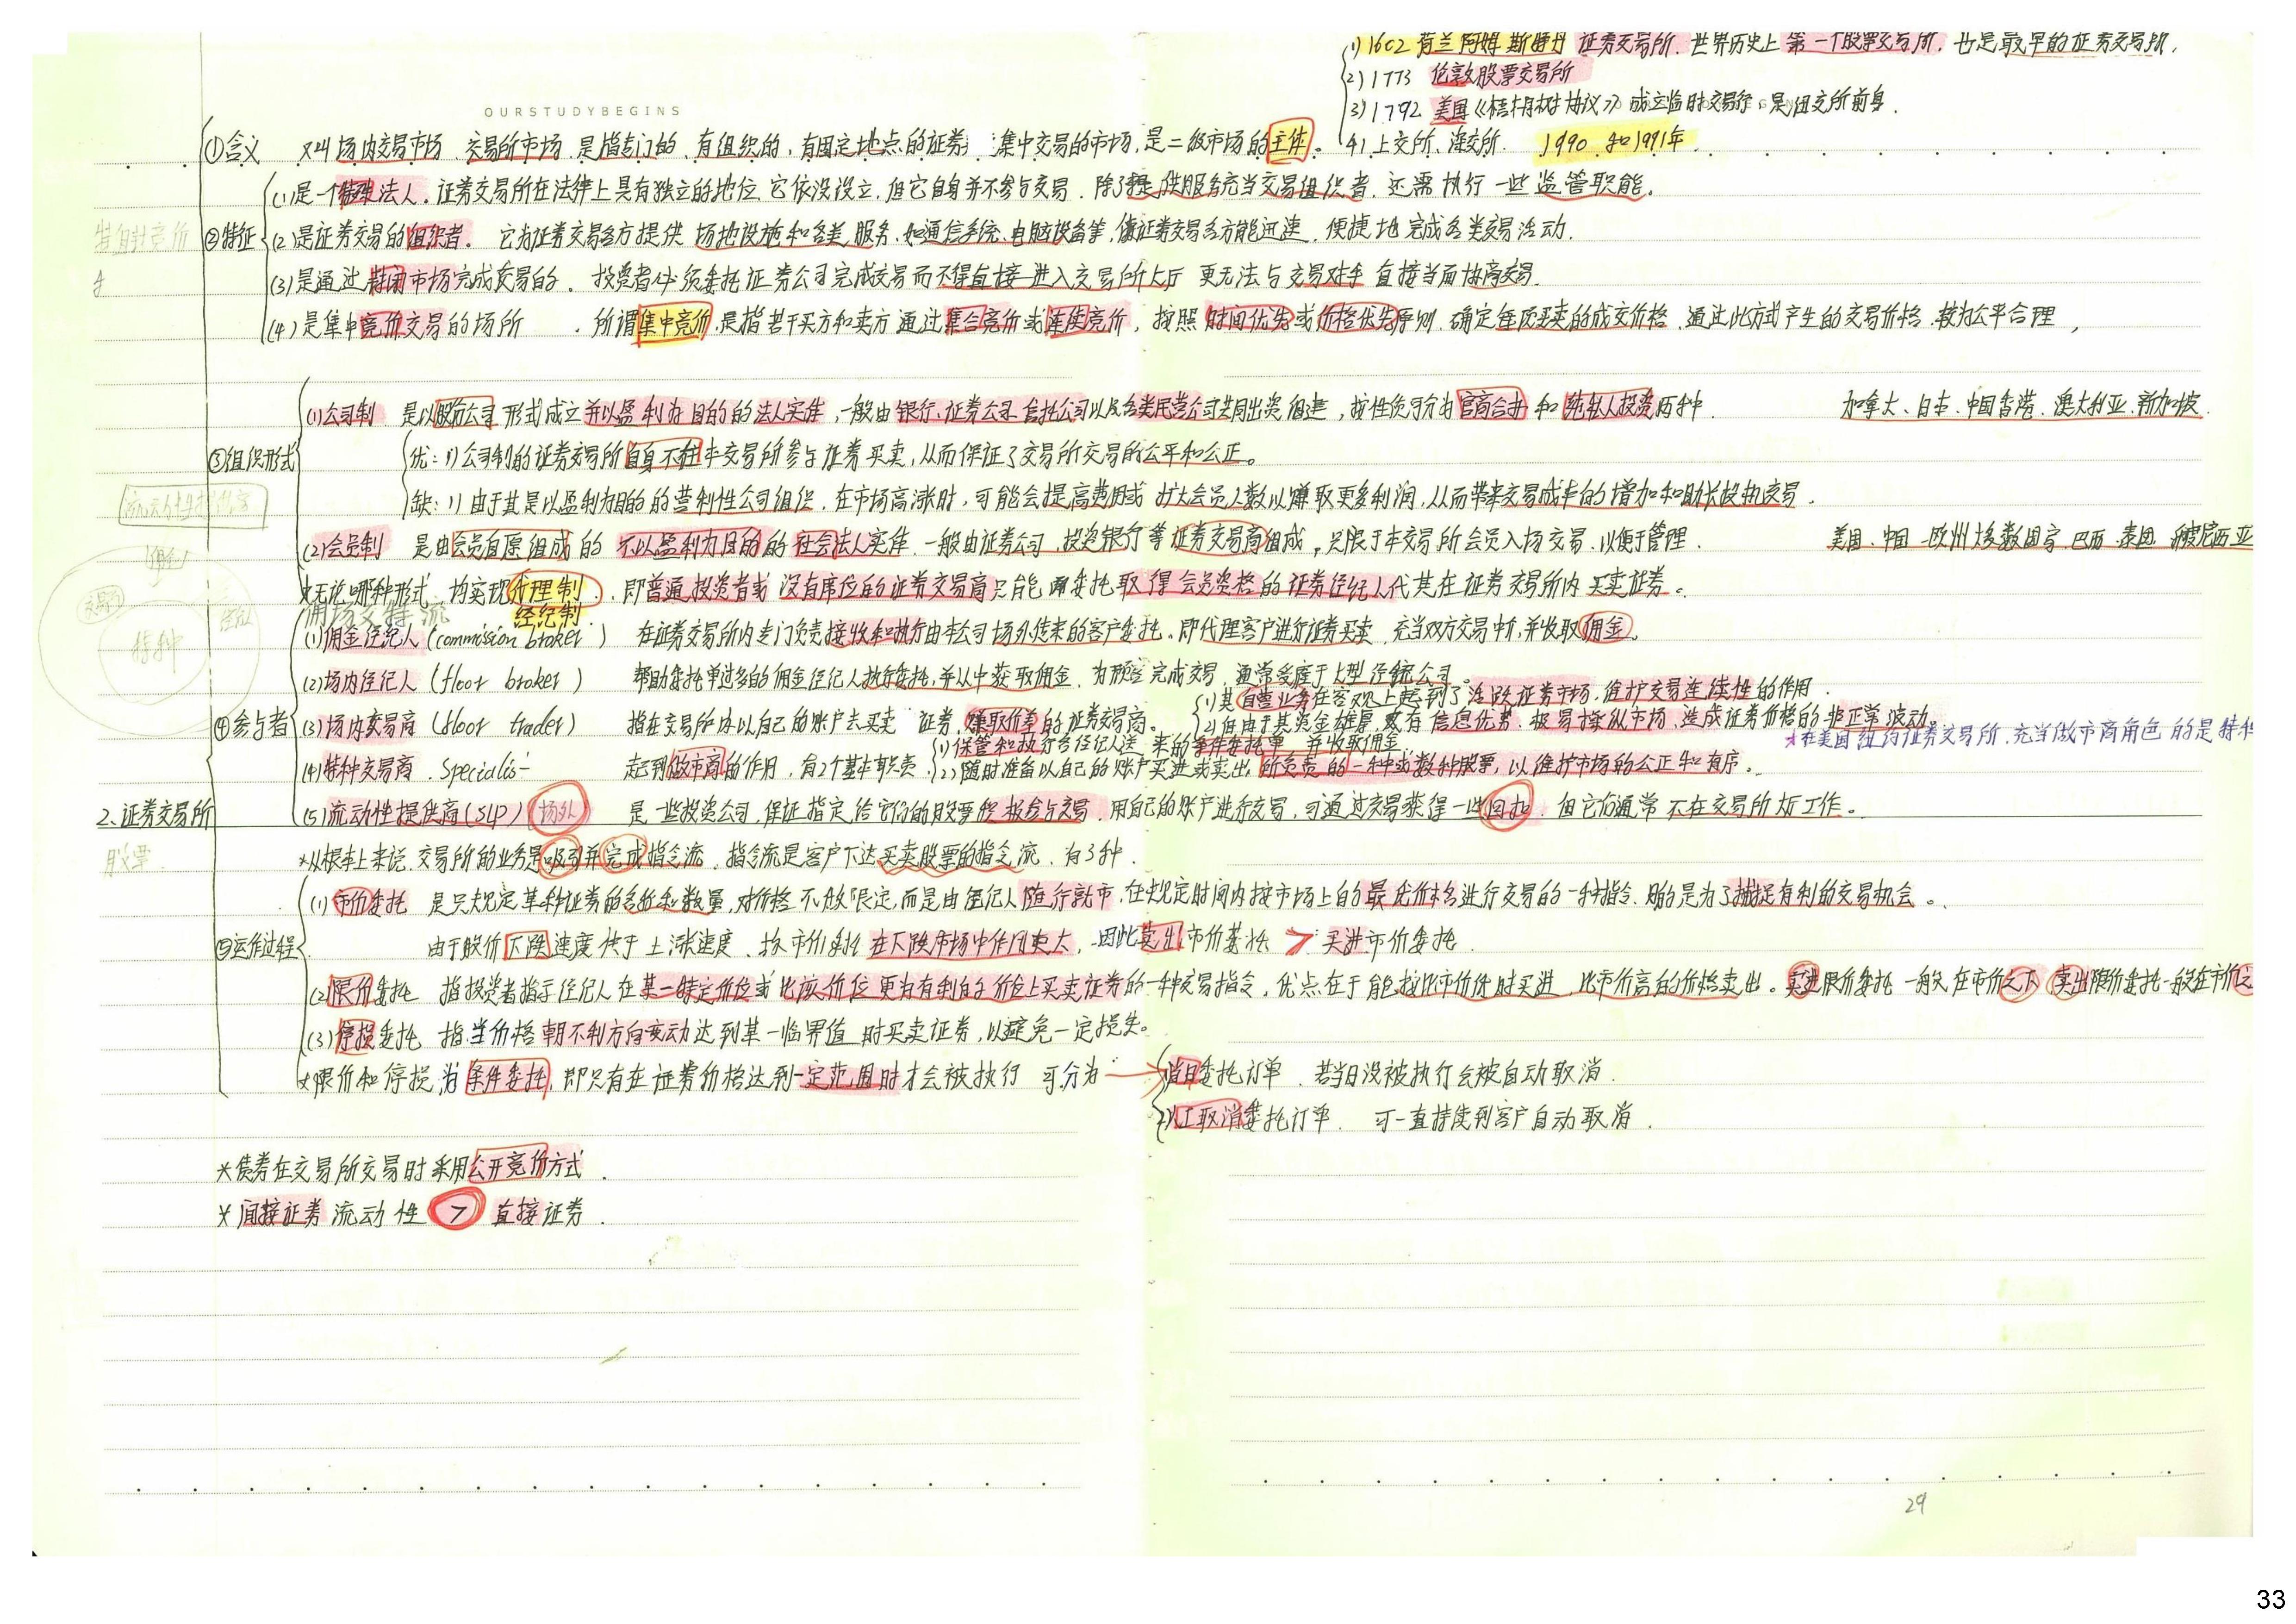 OURSTUDYBEGINS
(1) 1602 荷兰阿姆斯特丹 证券交易所. 世界历史上第一个股票交易所. 也是最早的证券交易所.
(2) 1773 伦敦股票交易所
(3) 1792 美国《梧桐树协议》成立临时交易所: 是纽交所前身.
(4) 上交所、深交所. 1990 和1991年.
①含义 又叫场内交易市场、交易所市场. 是指专门的、有组织的、有固定地点的证券 集中交易的市场, 是二级市场的主体。
②特征
(1)是一个特殊法人. 证券交易所在法律上具有独立的地位. 它依没设立. 但它自身并不参与交易. 除了提供服务充当交易组织者, 还需执行一些监管职能。
特自封竞价
(2)是证券交易的组织者。 它为证券交易各方提供场地设施和各类服务. 如通信系统、电脑设备等, 使证券交易各方能迅速、便捷地完成各类交易活动.
(3)是通过封闭市场完成交易的。 投资者必须委托证券公司完成交易而不得直接进入交易所大厅 更无法与交易对手直接当面协商交易.
(4)是集中竞价交易的场所 . 所谓集中竞价, 是指若干买方和卖方通过集合竞价或连续竞价, 按照时间优先或价格优先原则. 确定每项买卖的成交价格. 通过此方式产生的交易价格. 较为公平合理,
③组织形式
(1)公司制 是以股份公司形式成立并以盈利为目的的法人实体, 一般由银行、证券公司 信托公司以及各类民营公司共同出资组建, 按性质可分为官商合办和纯私人投资两种. 加拿大、日本、中国香港、澳大利亚、新加坡
优: 1) 公司制的证券交易所自身不在本交易所参与证券买卖, 从而保证了交易所交易的公平和公正。
缺: 1) 由于其是以盈利为目的的营利性公司组织. 在市场高涨时, 可能会提高费用或扩大会员人数以赚取更多利润, 从而带来交易成本的增加和助长投机交易.
流动性提供商
(2)会员制 是由会员自愿组成的 不以盈利为目的的社会法人实体. 一般由证券公司、投资银行等证券交易商组成, 只限于本交易所会员入场交易. 以便于管理. 美国、中国 欧州大多数国家. 巴西、泰国、印度尼西亚
*无论哪种形式. 均实现代理制. 即普通投资者或没有席位的证券交易商只能委托取得会员资格的证券经纪人代其在证券交易所内买卖证券。
经纪制
佣场交特流
佣金
交易商
经纪人
特种
④参与者
(1)佣金经纪人 (commission broker) 在证券交易所内专门负责接收和执行由本公司场外传来的客户委托. 即代理客户进行证券买卖. 充当双方交易中介, 并收取佣金。
(2)场内经纪人 (floor broker) 帮助委托单过多的佣金经纪人执行委托, 并从中获取佣金. 通常受雇于大型经纪公司。
(3)场内交易商 (floor trader) 指在交易所内以自己的账户去买卖 证券, 赚取价差的证券交易商。
(1)其自营业务在客观上起到了活跃证券市场. 维护交易连续性的作用.
(2)但由于其资金雄厚, 又有信息优势. 极易操纵市场. 造成证券价格的非正常波动.
*在美国纽约证券交易所, 充当做市商角色的是特种
(4)特种交易商. Specialis 起到做市商的作用, 有2个基本职责.
(1)保管和执行各经纪人送来的条件委托单 并收取佣金
(2)随时准备以自己的账户买进或卖出 所负责的一种或数种股票, 以维护市场的公正和有序。
2. 证券交易所
(5)流动性提供商(SLP) (场外) 是一些投资公司, 保证指定给它们的股票积极参与交易. 用自己的账户进行交易, 可通过交易获得一些回扣. 但它们通常不在交易所大厅工作。
股票
*从根本上来说. 交易所的业务是吸引并完成指令流. 指令流是客户下达买卖股票的指令流. 有3种.
⑤运作过程
(1)市价委托 是只规定某种证券的名称和数量, 对价格不做限定, 而是由经纪人随行就市, 在规定时间内按市场上的最优价格进行交易的一种指令. 目的是为了捕捉有利的交易机会。
由于股价下跌速度快于上涨速度. 故市价委托在下跌市场中作用更大. 因此卖出市价委托 > 买进市价委托.
(2)限价委托 指投资者指示经纪人在某一特定价位或比该价位更为有利的价位上买卖证券的一种交易指令. 优点在于能按比市价低时买进, 比市价高的价格卖出. 买进限价委托一般在市价之下 卖出限价委托一般在市价之
(3)停损委托 指当价格朝不利方向变动达到某一临界值时买卖证券, 以避免一定损失。
*限价和停损为条件委托, 即只有在证券价格达到一定范围时才会被执行 可分为 →
当日委托订单. 若当日没被执行会被自动取消.
取消委托订单. 可一直持续到客户自动取消.
*债券在交易所交易时采用公开竞价方式.
*间接证券流动性 > 直接证券.
29
33